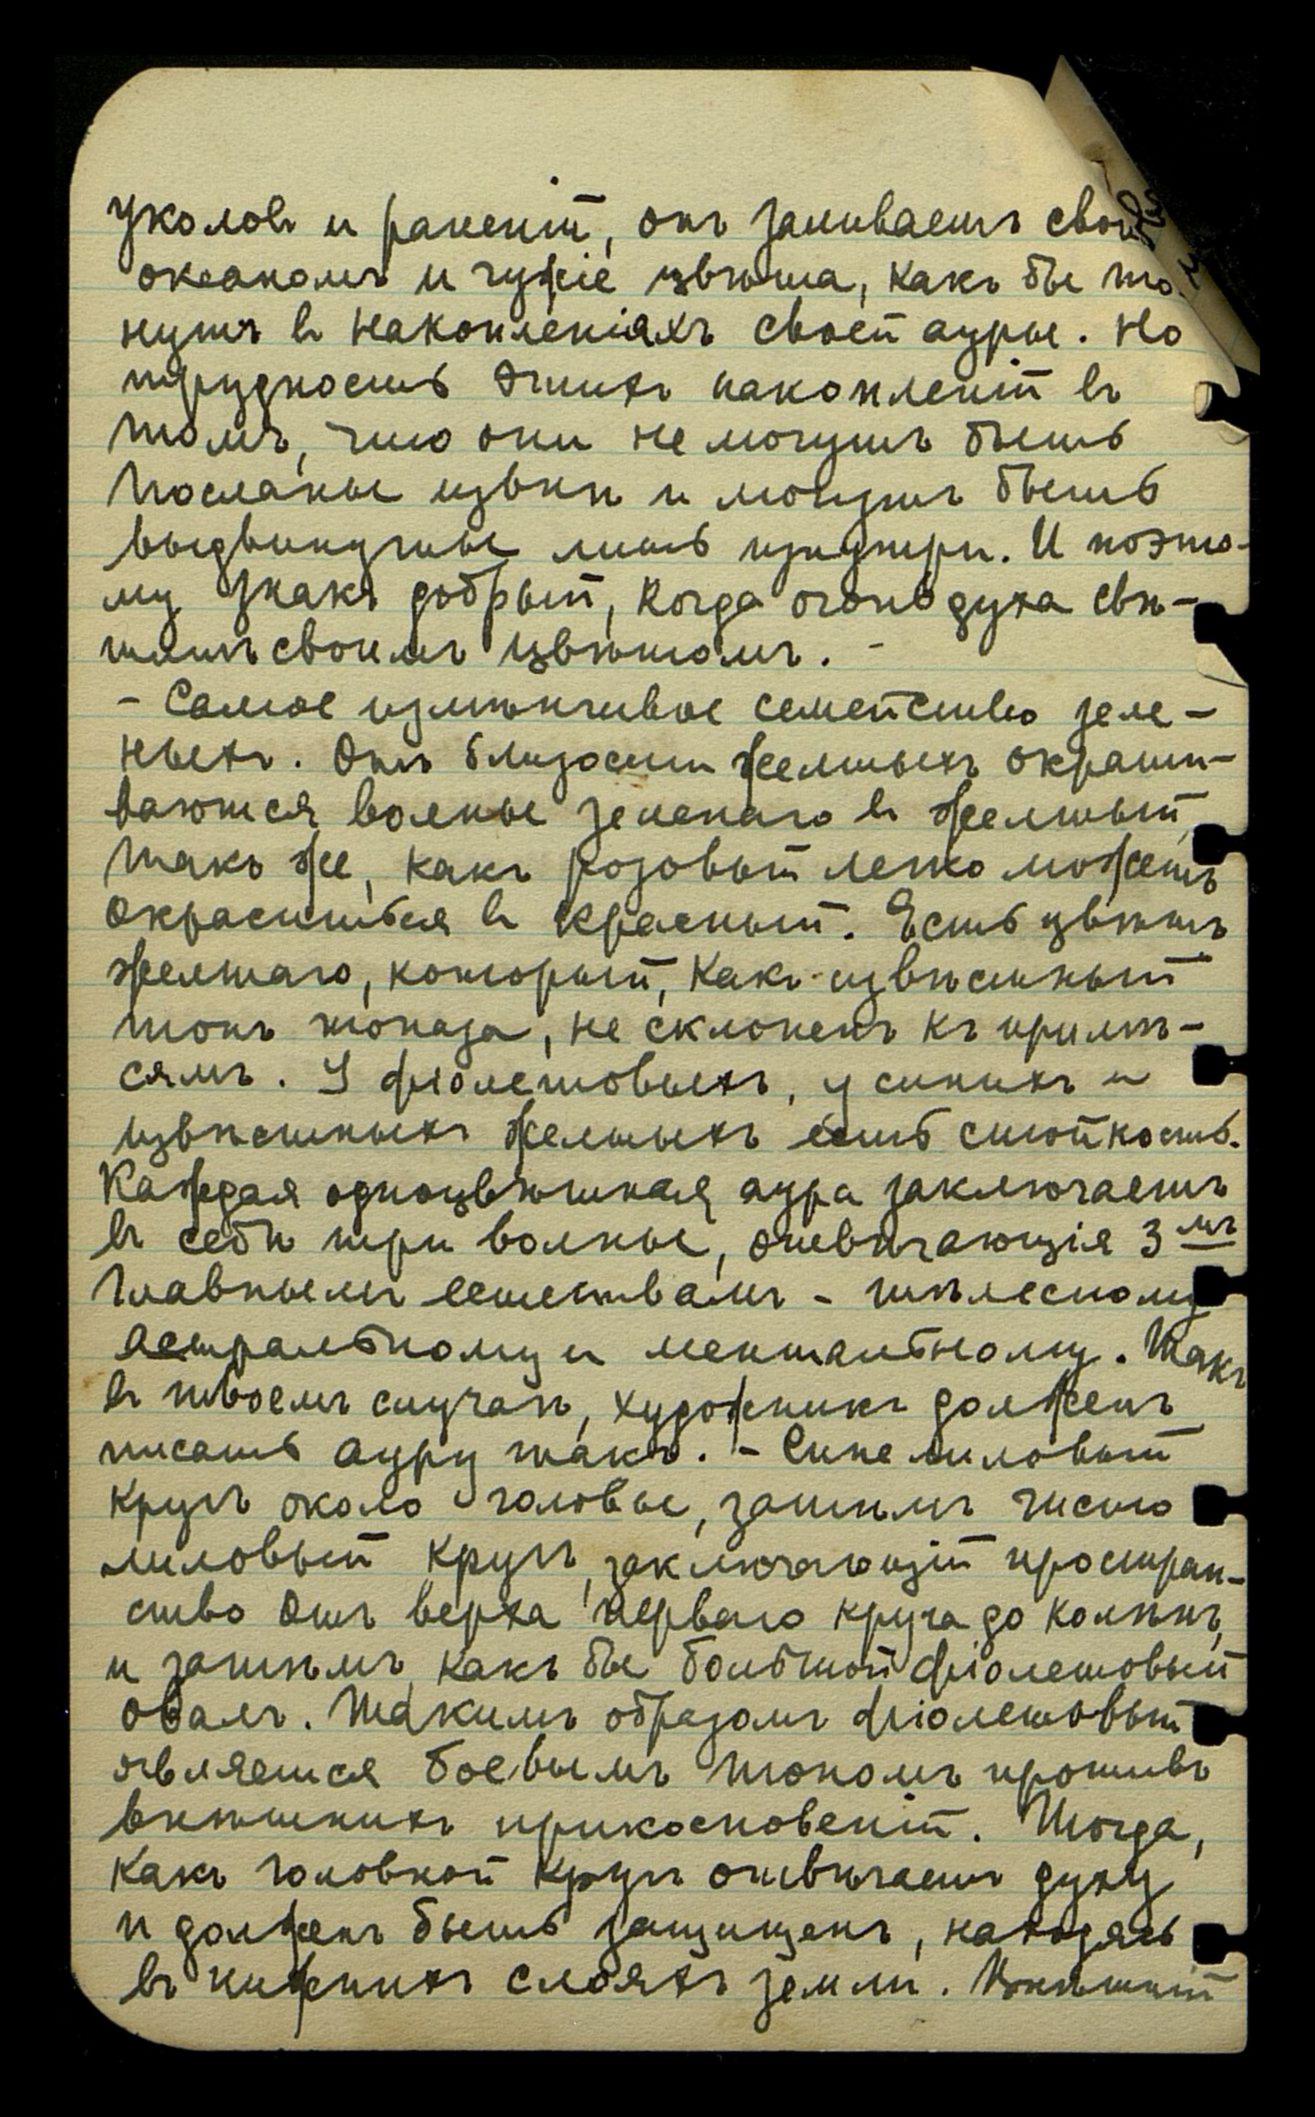 уколовъ и раненій, онъ заливаетъ свои
океаномъ и чужіе цвѣта, какъ бы то-
нутъ въ накопленіяхъ своей ауры. Но
трудность этихъ накопленій въ
томъ, что они не могутъ быть
посланы извнѣ и могутъ быть
выдвинуты лишь изнутри. И поэто-
му знакъ добрый, когда огонь духа свѣ-
титъ своимъ цвѣтомъ. -
- Самое измѣнчивое семейство зеле-
ныхъ. Отъ близости желтыхъ окраши-
ваются волны зеленаго въ желтый,
такъ же, какъ розовый легко можетъ
окраситься въ красный. Есть цвѣтъ
желтаго, который, какъ извѣстный
тонъ топаза, не склоненъ къ примѣ-
сямъ. У фіолетовыхъ, у синихъ и
извѣстныхъ желтыхъ есть стойкость.
Каждая одноцвѣтная аура заключаетъ
въ себѣ три волны, отвѣчающія 3мъ
главнымъ естествамъ - тѣлесному
астральному и ментальному. Такъ
въ твоемъ случаѣ, художникъ долженъ
писать ауру такъ. - Сине лиловый
кругъ около головы, затѣмъ чисто
лиловый кругъ, заключающій простран-
ство отъ верха перваго круга до колѣнъ,
и затѣмъ какъ бы большой фіолетовый
овалъ. Такимъ образомъ фіолетовый
является боевымъ тономъ противъ
внѣшнихъ прикосновеній. Тогда,
какъ головной кругъ отвѣчаетъ духу
и долженъ быть защищенъ, находясь
въ нижнихъ слояхъ земли. Внѣшній